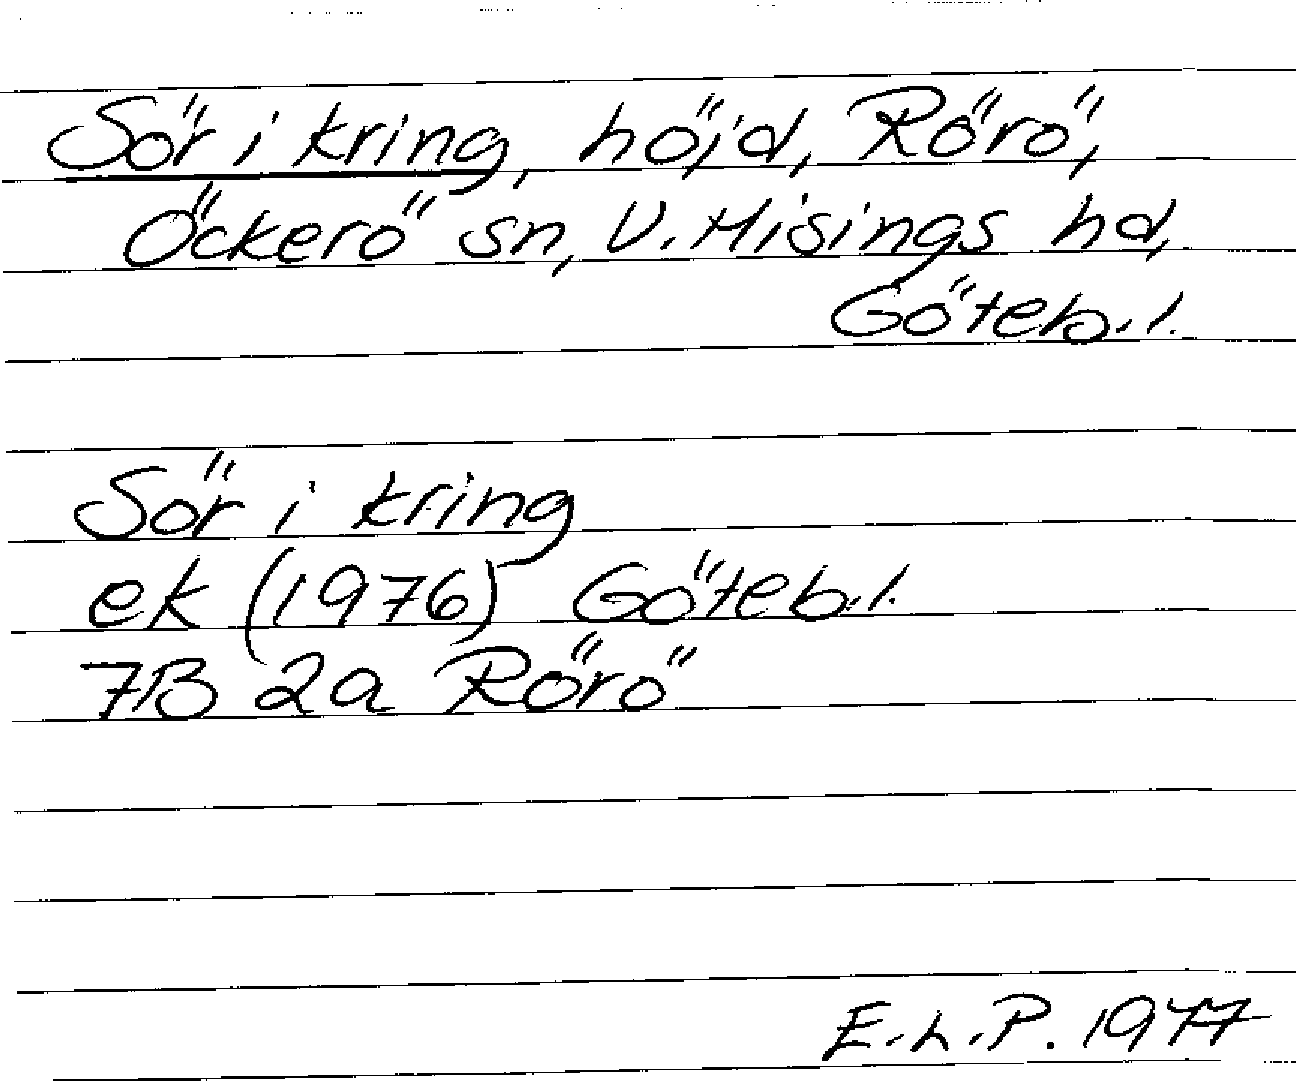 Sör i kring, höjd, Rörö,
Öckerö sn, V. Hisings hd,
Göteb. l.
Sör i kring
ek (1976) Göteb. l.
7B 2a Rörö
E.L.P. 1977